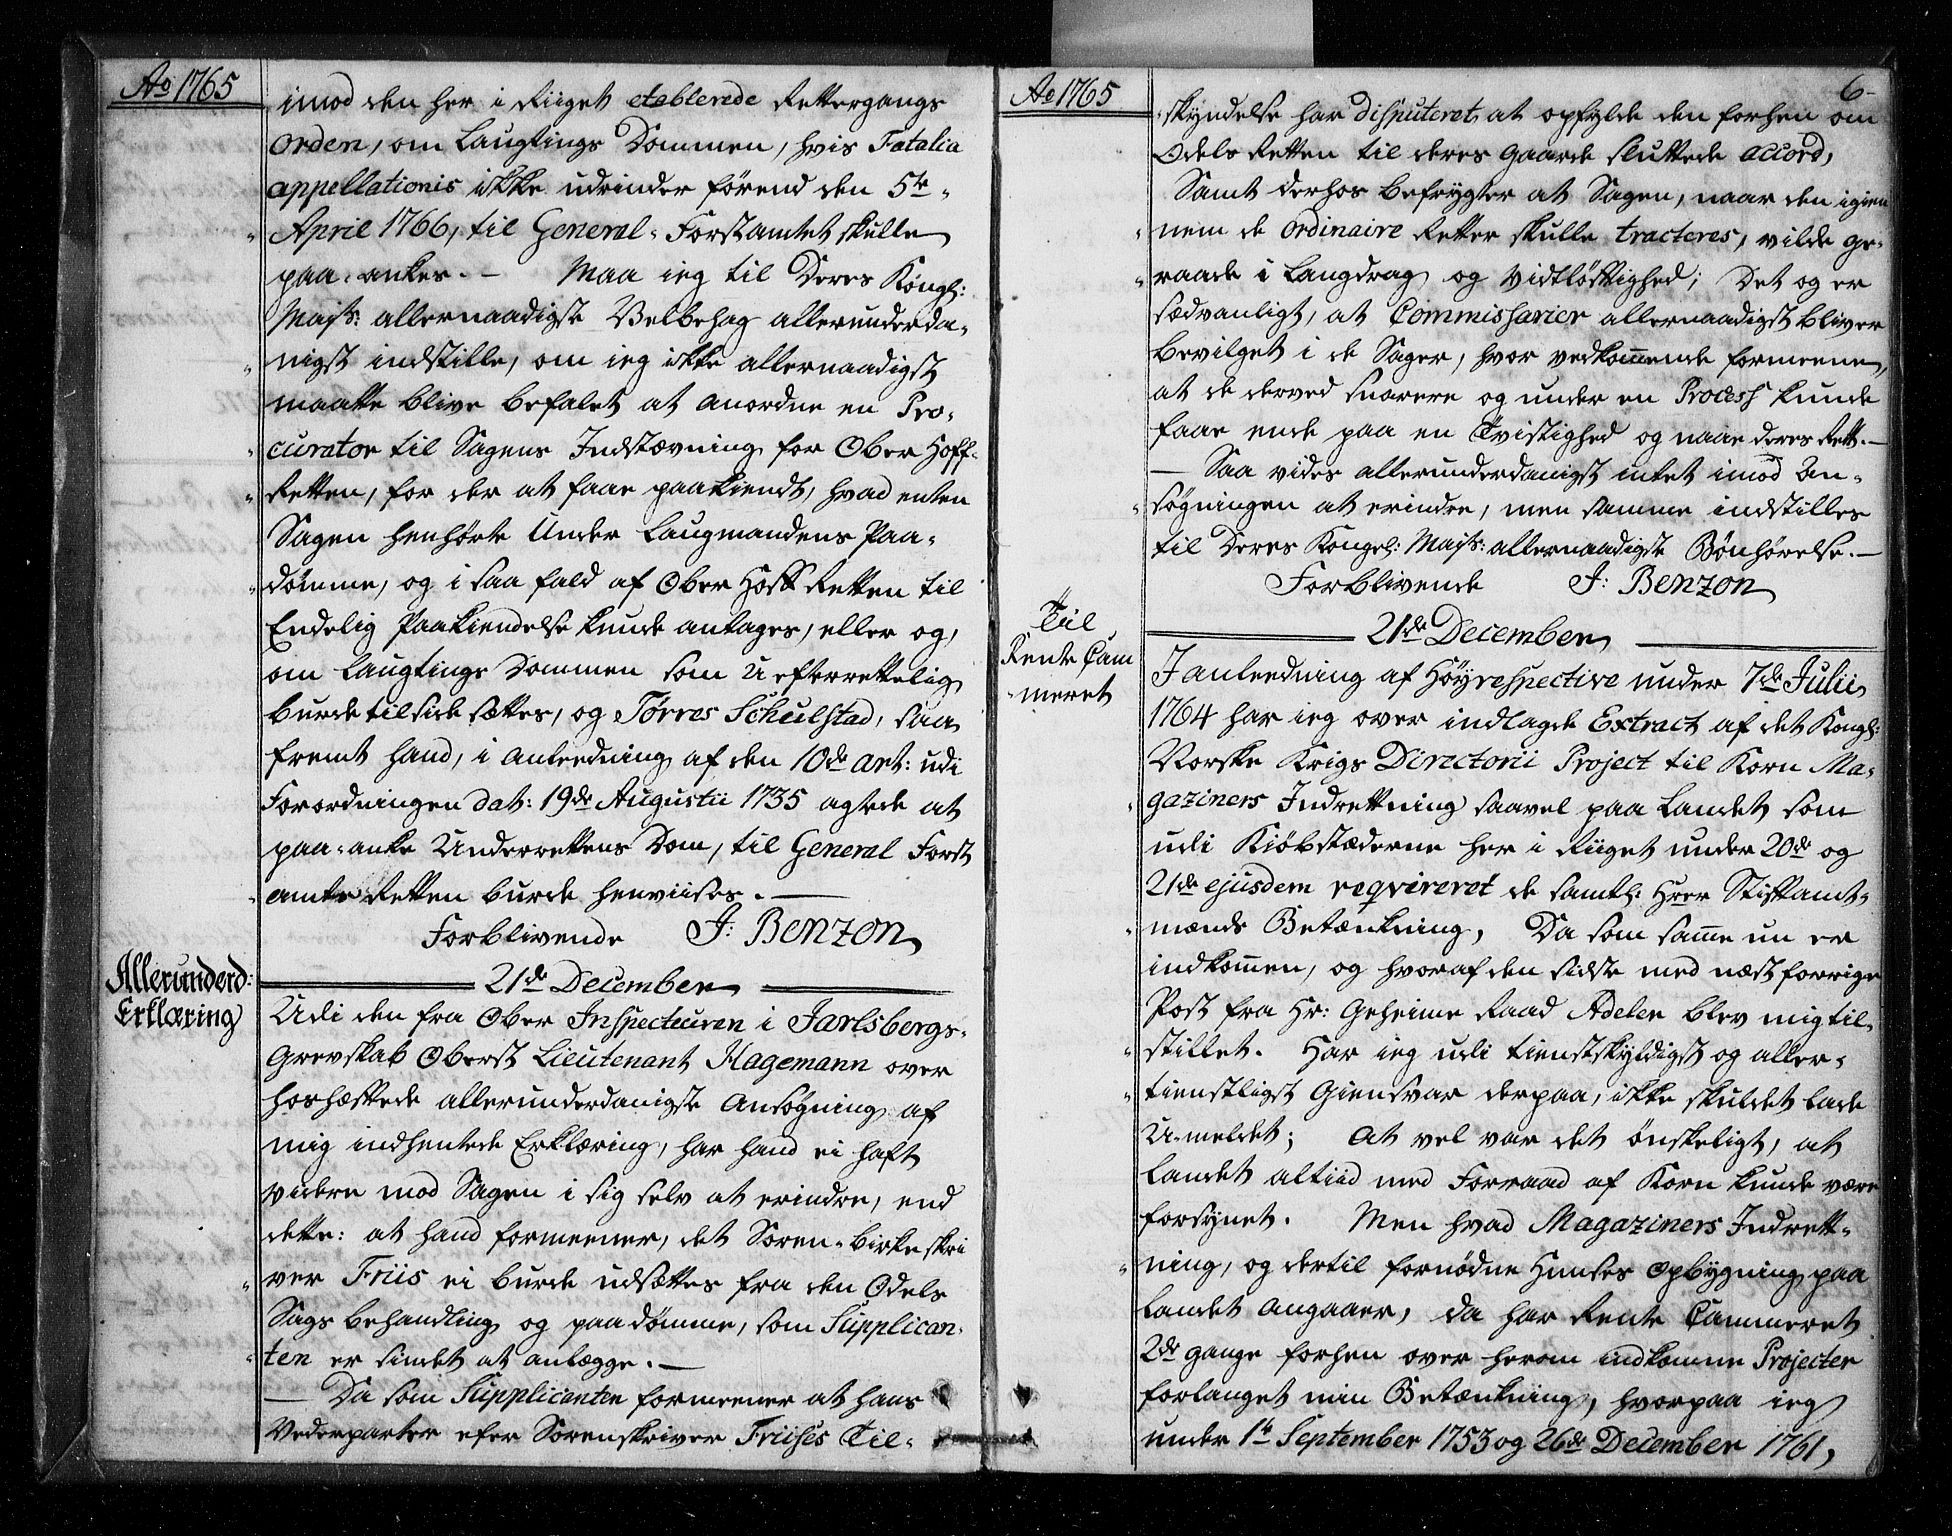 Ao 1765
imod den her i Riiget etablerede Rettergangs
Orden, om Laugtings Dommen, hvis Fatalia
appellationis ikke udrinder førend den 5te
April 1766, til General-Forstamtet skulle
paa-ankes. — Maa ieg til Deres Kongl:
Majts: allernaadigste Velbehag allerunderda-
nigst indstille, om ieg ikke allernaadigst
maatte blive befalet at anordne en Pro-
curator til Sagens Indstævning for Ober Hoff-
Retten, for der at faae paakiendt, hvad enten
Sagen henhørte Under Laugmandens Paa-
dømme, og i saa fald af Ober Hoff Retten til
Endelig Paakiendelse kunde antages, eller og,
om Laugtings Dommen som Uefterrettelig
burde tilside sættes, og Tørres Schulstad, saa-
fremt hand, i Anleedning af den 10de Art: udi
Forordningen dat: 19de Augustii 1735 agtede at
paa-anke Underrettens Dom, til General Forst
amts Retten burde henviises. —
Forblivende J: Benzon
21de December
Allerunderd:
Erklæring
Udi den fra Ober Inspecteuren i Jarlsbergs-
Grevskab Oberst Lieutenant Hagemann over
hoshæftede allerunderdanigste Ansøgning af
mig indhentede Erklæring, har hand ei haft
videre mod Sagen i sig selv at erindre, end
dette: at hand formeener, det Soren-birkeskri
ver Friis ei burde udsættes fra den Odels
Sags behandling og paadømme, som Supplican-
ten er sindet at anlægge. —
— Da som Supplicanten formeener at hans
Vederparter efter Sorenskriver Friises Til-
Ao 1765
6
skyndelse har disputeret at opfylde den forhen om
Odels Retten til deres Gaarde sluttede accord,
Samt derhos befrygter at Sagen, naar den igien
nem de ordinaire Retter skulle tracteres, vilde ge-
raade i Langdrag og Vidtløftighed; Det og er
sædvanligt, at Commissarier allernaadigst bliver
bevilget i de Sager, hvor vedkommende formeene,
at de derved snarere og under en Process kunde
faae ende paa en Tvistighed og naae deres Rett. —
— Saa vides allerunderdanigst intet imod An-
søgningen at erindre, men samme indstilles
til Deres Kongel: Majts: allernaadigste Bønhørelse. —
Forblivende J: Benzon
21de December
Til
Rente Cam
meret
I anleedning af Høyrespective under 7de Julii
1764 har ieg over indlagde Extract af det Kongl:
Norske Krigs Directorii Project til Korn Ma-
gaziners Indrettning saavel paa Landet som
udi Kiøbstæderne her i Riiget under 20de og
21de ejusdem reqvireret de samtl: Hrer Stiftamt-
mænds Betænkning, Da som samme nu er
indkommen, og hvoraf den sidste med næst forrige
Post fra Hr: Geheime Raad Adeler blev mig til-
stillet. Har ieg udi tienstskyldigst og aller-
tienstligst Giensvar derpaa, ikke skuldet lade
U-meldet; At vel var det ønskeligt, at
Landet altiid med Forraad af Korn kunde være
forsynet. Men hvad Magaziners Indrett-
ning, og dertil fornødne Huuses Opbygning paa
Landet angaaer, da har Rente Cammeret
2de gange forhen over herom indkomne Projecter
forlanget min Betænkning, hvorpaa ieg
under 1te September 1753 og 26de December 1761,